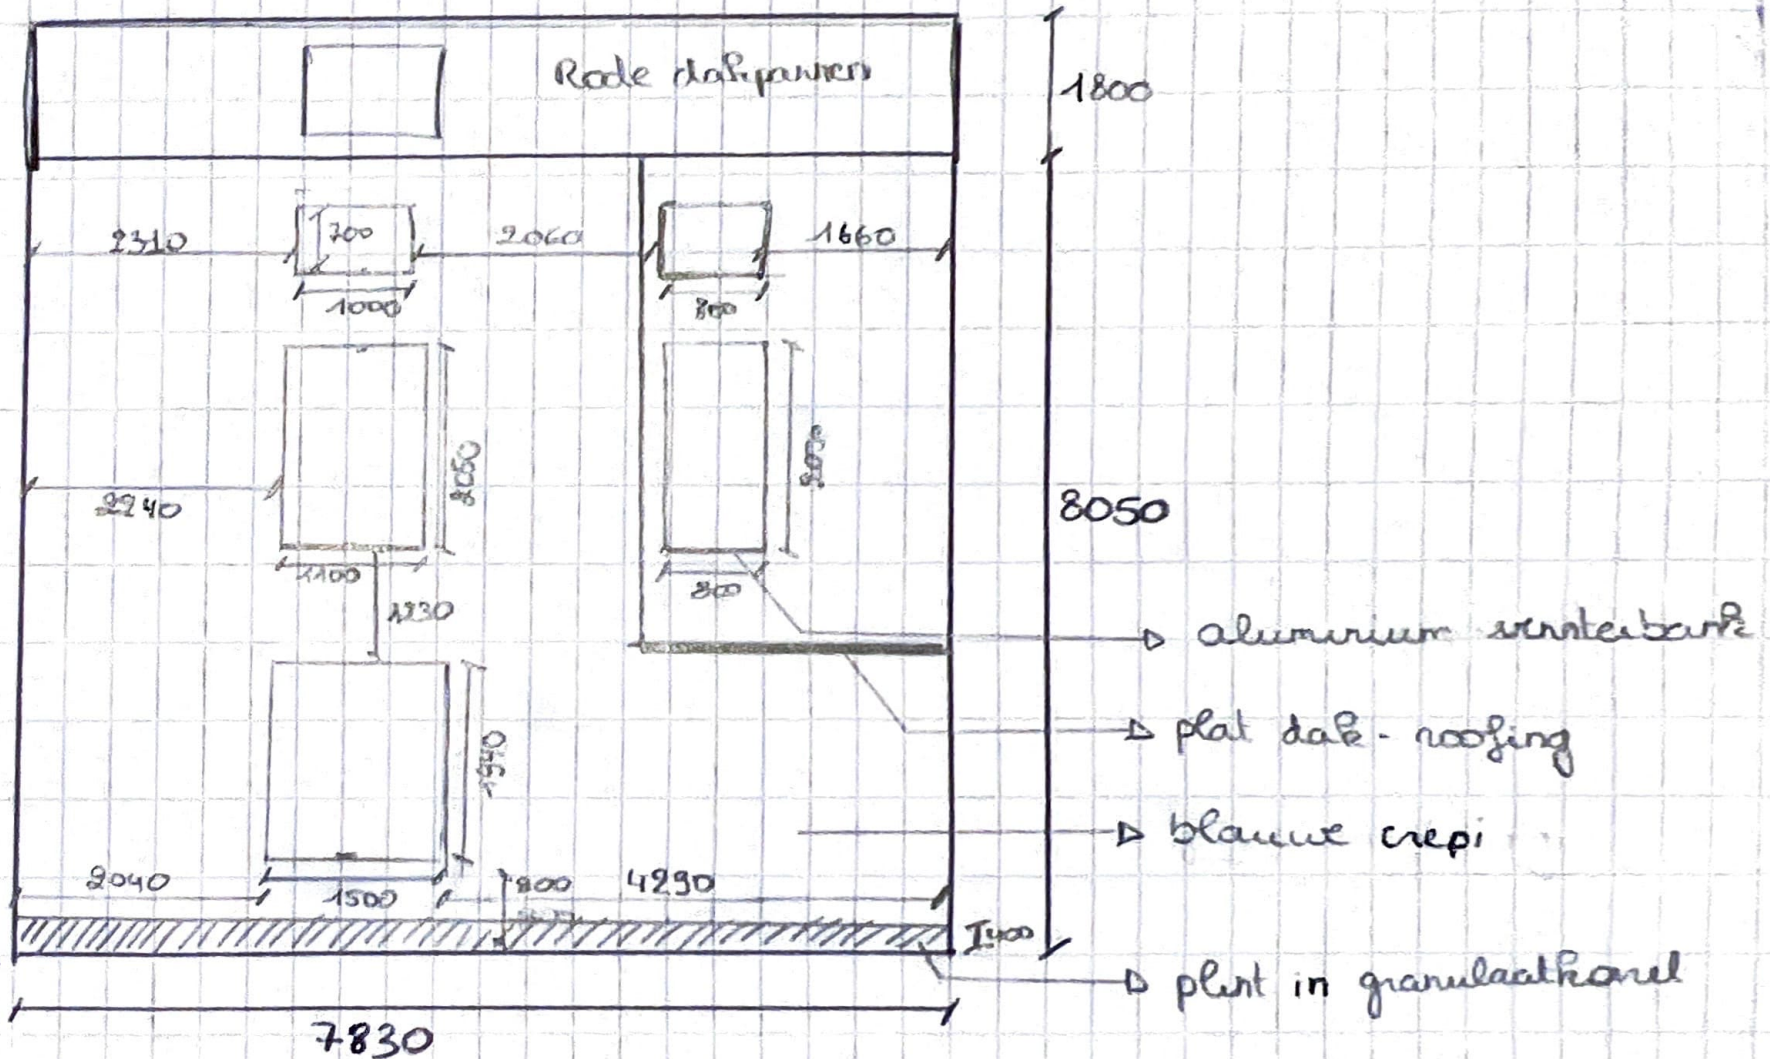 Rode dakpannen
1800
2310
700
2060
1660
1000
800
2240
2050
2050
8050
1100
800
1230
aluminium vensterbank
plat dak - roofing
1940
blauwe crepi
2040
1500
800
4290
400
plint in granulaatkorrel
7830